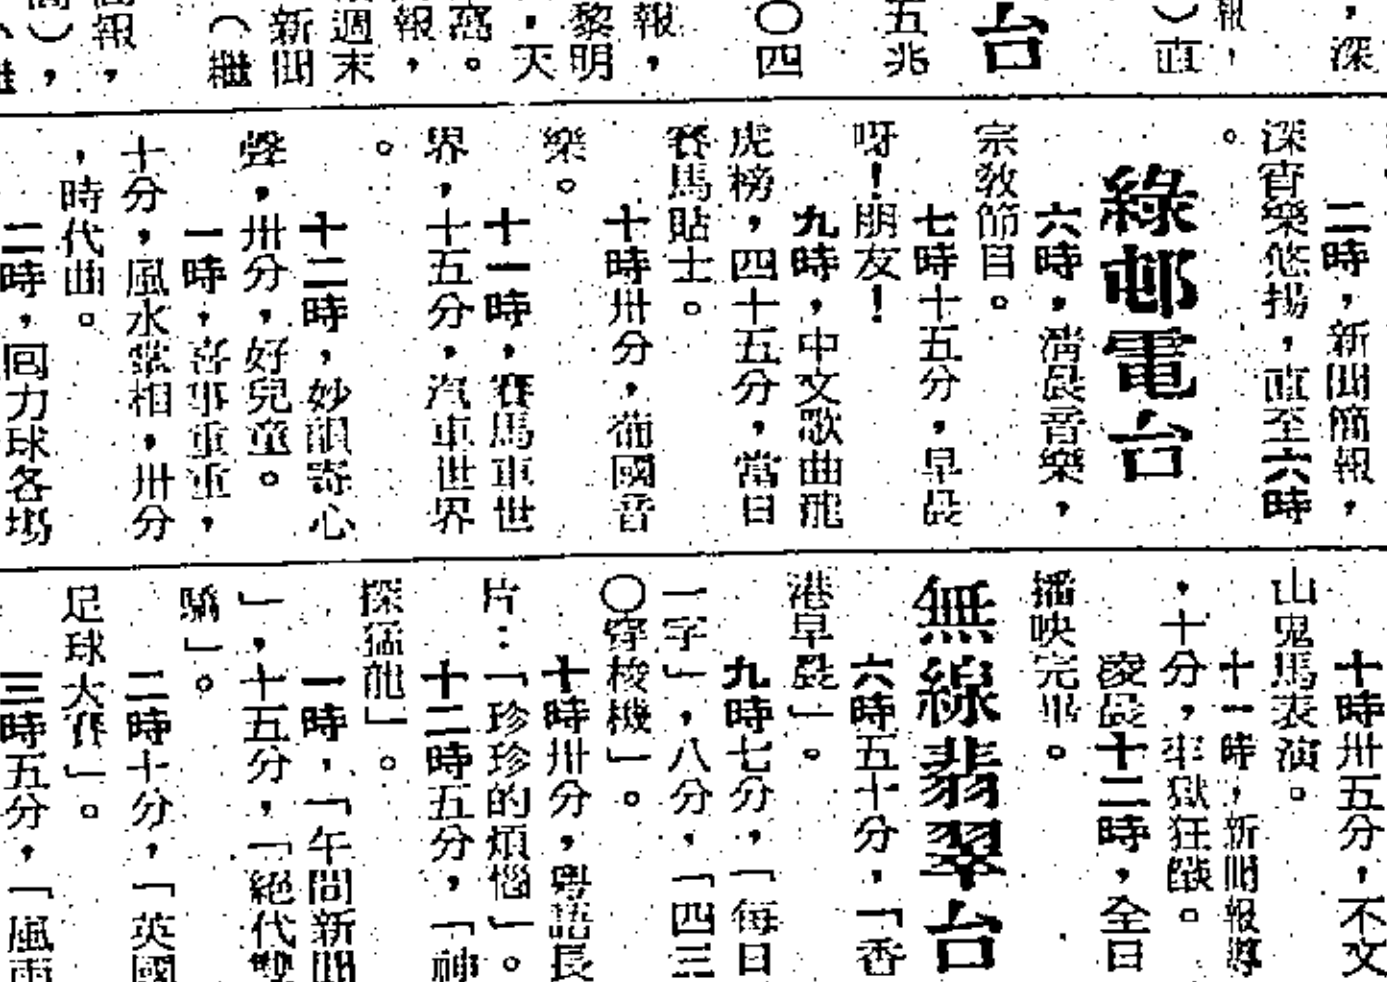 ，深
報，
）直
台
五兆
〇四
報，
黎明
，天
萬。
報，
週末
新聞
（繼
報，
二時，新聞簡報，
深宵樂悠揚，直至六時
。
綠邨電台
六時，清晨音樂，
宗教節目。
七時十五分，早晨
呀！朋友！
九時，中文歌曲龍
虎榜，四十五分，當日
賽馬貼士。
十時卅分，葡國音
樂。
十一時，賽馬車世
界，十五分，汽車世界
。
十二時，妙韻寄心
聲，卅分，好兒童。
一時，喜事重重，
十分，風水掌相，卅分
，時代曲。
二時，回力球各場
十時卅五分，不文
山鬼馬表演。
十一時，新聞報導
，十分，牢獄狂燄。
凌晨十二時，全日
播映完畢。
無線翡翠台
六時五十分，「香
港早晨」。
九時七分，「每日
一字」，八分，「四三
〇穿梭機」。
十時卅分，粵語長
片：「珍珍的煩惱」。
十二時五分，「神
探猛龍」。
一時，「午間新聞
」，十五分，「絕代雙
驕」。
二時十分，「英國
足球大賽」。
三時五分，「風雨